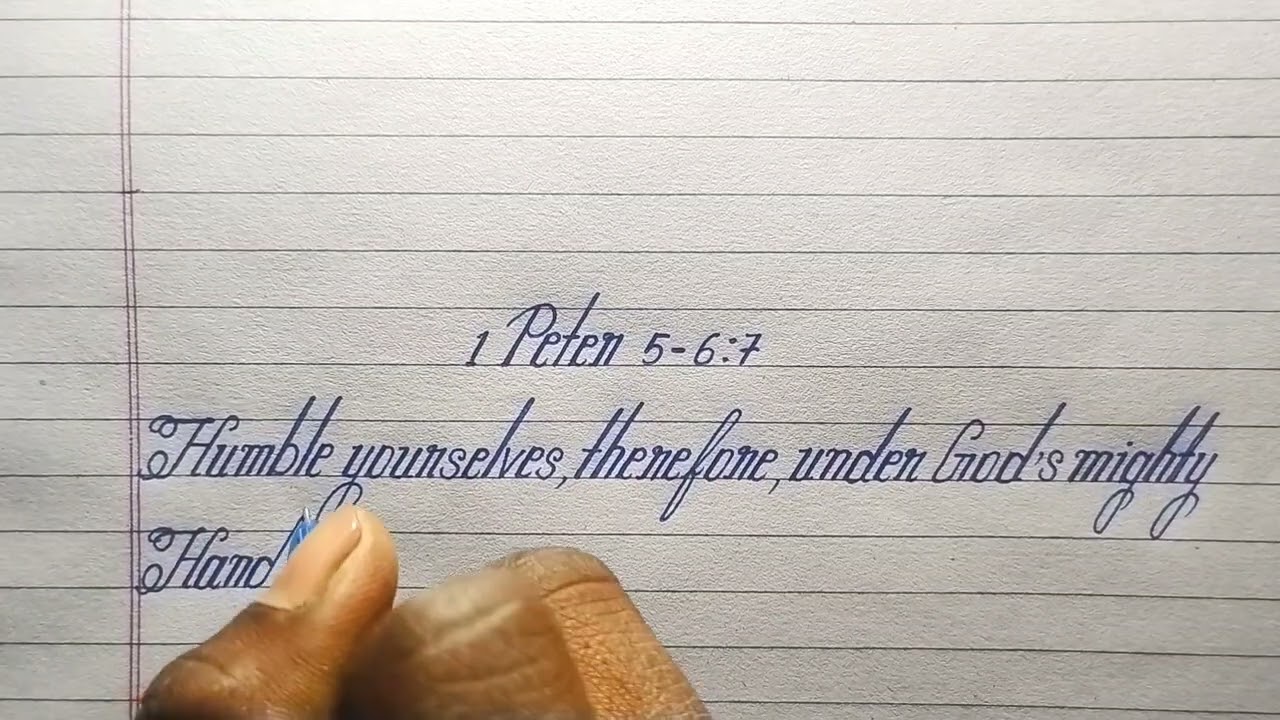 1 Peter 5-6:7
Humble yourselves, therefore, under God's mighty
Hand